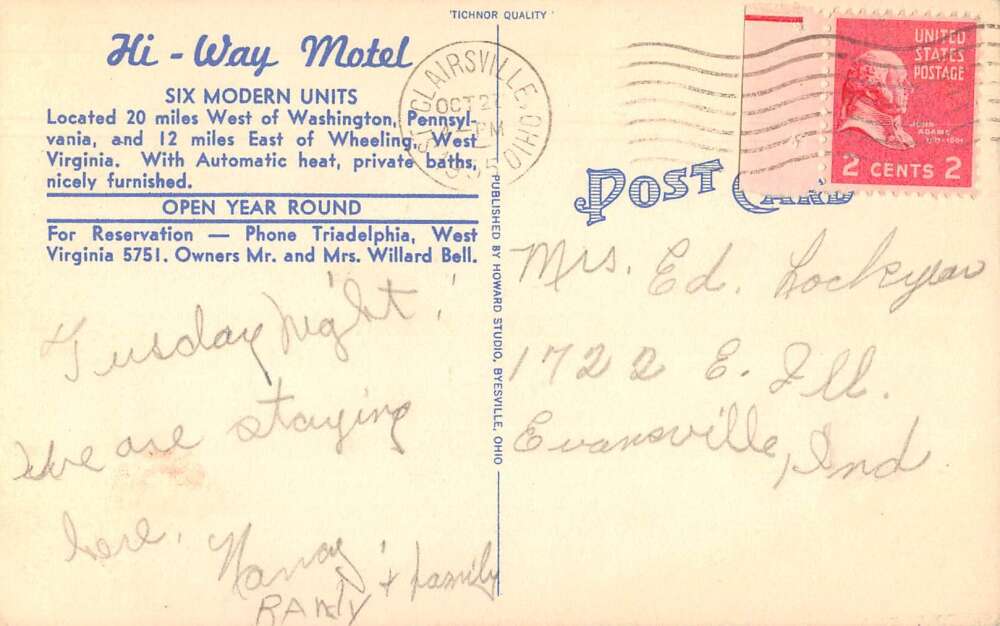 'TICHNOR QUALITY'
Hi - Way Motel
SIX MODERN UNITS
Located 20 miles West of Washington, Pennsyl-
vania, and 12 miles East of Wheeling, West
Virginia. With Automatic heat, private baths,
nicely furnished.
OPEN YEAR ROUND
For Reservation — Phone Triadelphia, West
Virginia 5751. Owners Mr. and Mrs. Willard Bell.
Tusday Night!
We are staying
here. Nancy
RANDY + family
PUBLISHED BY HOWARD STUDIO, BYESVILLE, OHIO
ST. CLAIRSVILLE, OHIO
OCT
PM
UNITED
STATES
POSTAGE
JOHN
ADAMS
2 CENTS 2
POST CARD
Mrs. Ed. Lockyear
1722 E. Ill.
Evansville, Ind.